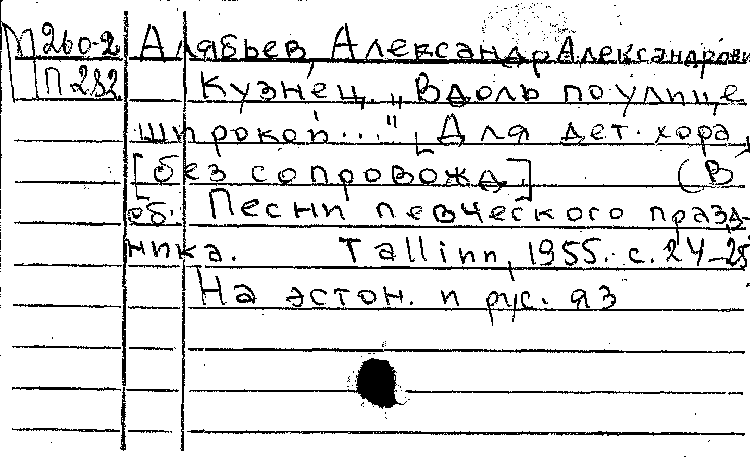 М260-2 Алябьев, Александр Александрови
П282 Кузнец. „Вдоль по улице
широкой..." [Для дет. хора,
[без сопровожд.] (В
сб.: Песни певческого празд-
ника. Tallinn, 1955. с. 24-25
На эстон. и рус. яз